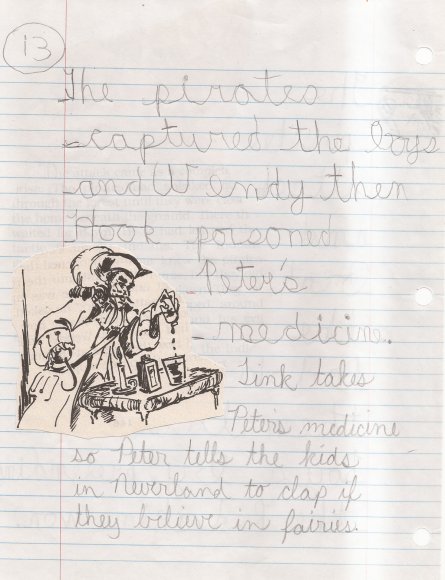 13
The pirates
captured the boys
and Wendy then
Hook poisoned
Peter's
medicine.
Tink takes
Peter's medicine
so Peter tells the kids
in Neverland to clap if
they believe in fairies.